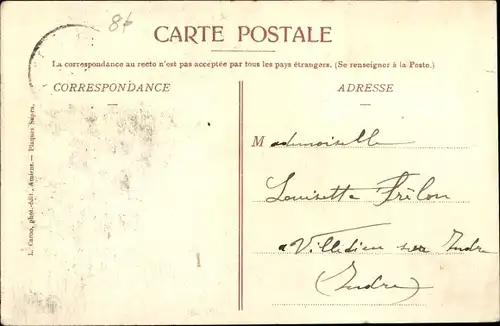 86
CARTE POSTALE
La correspondance au recto n'est pas acceptée par tous les pays étrangers. (Se renseigner à la Poste.)
CORRESPONDANCE
ADRESSE
Mademoiselle
Louisette Frélon
à Villedieu sur Indre
(Indre)
L. Caron, phot.-édit., Amiens. — Plaques Supra.